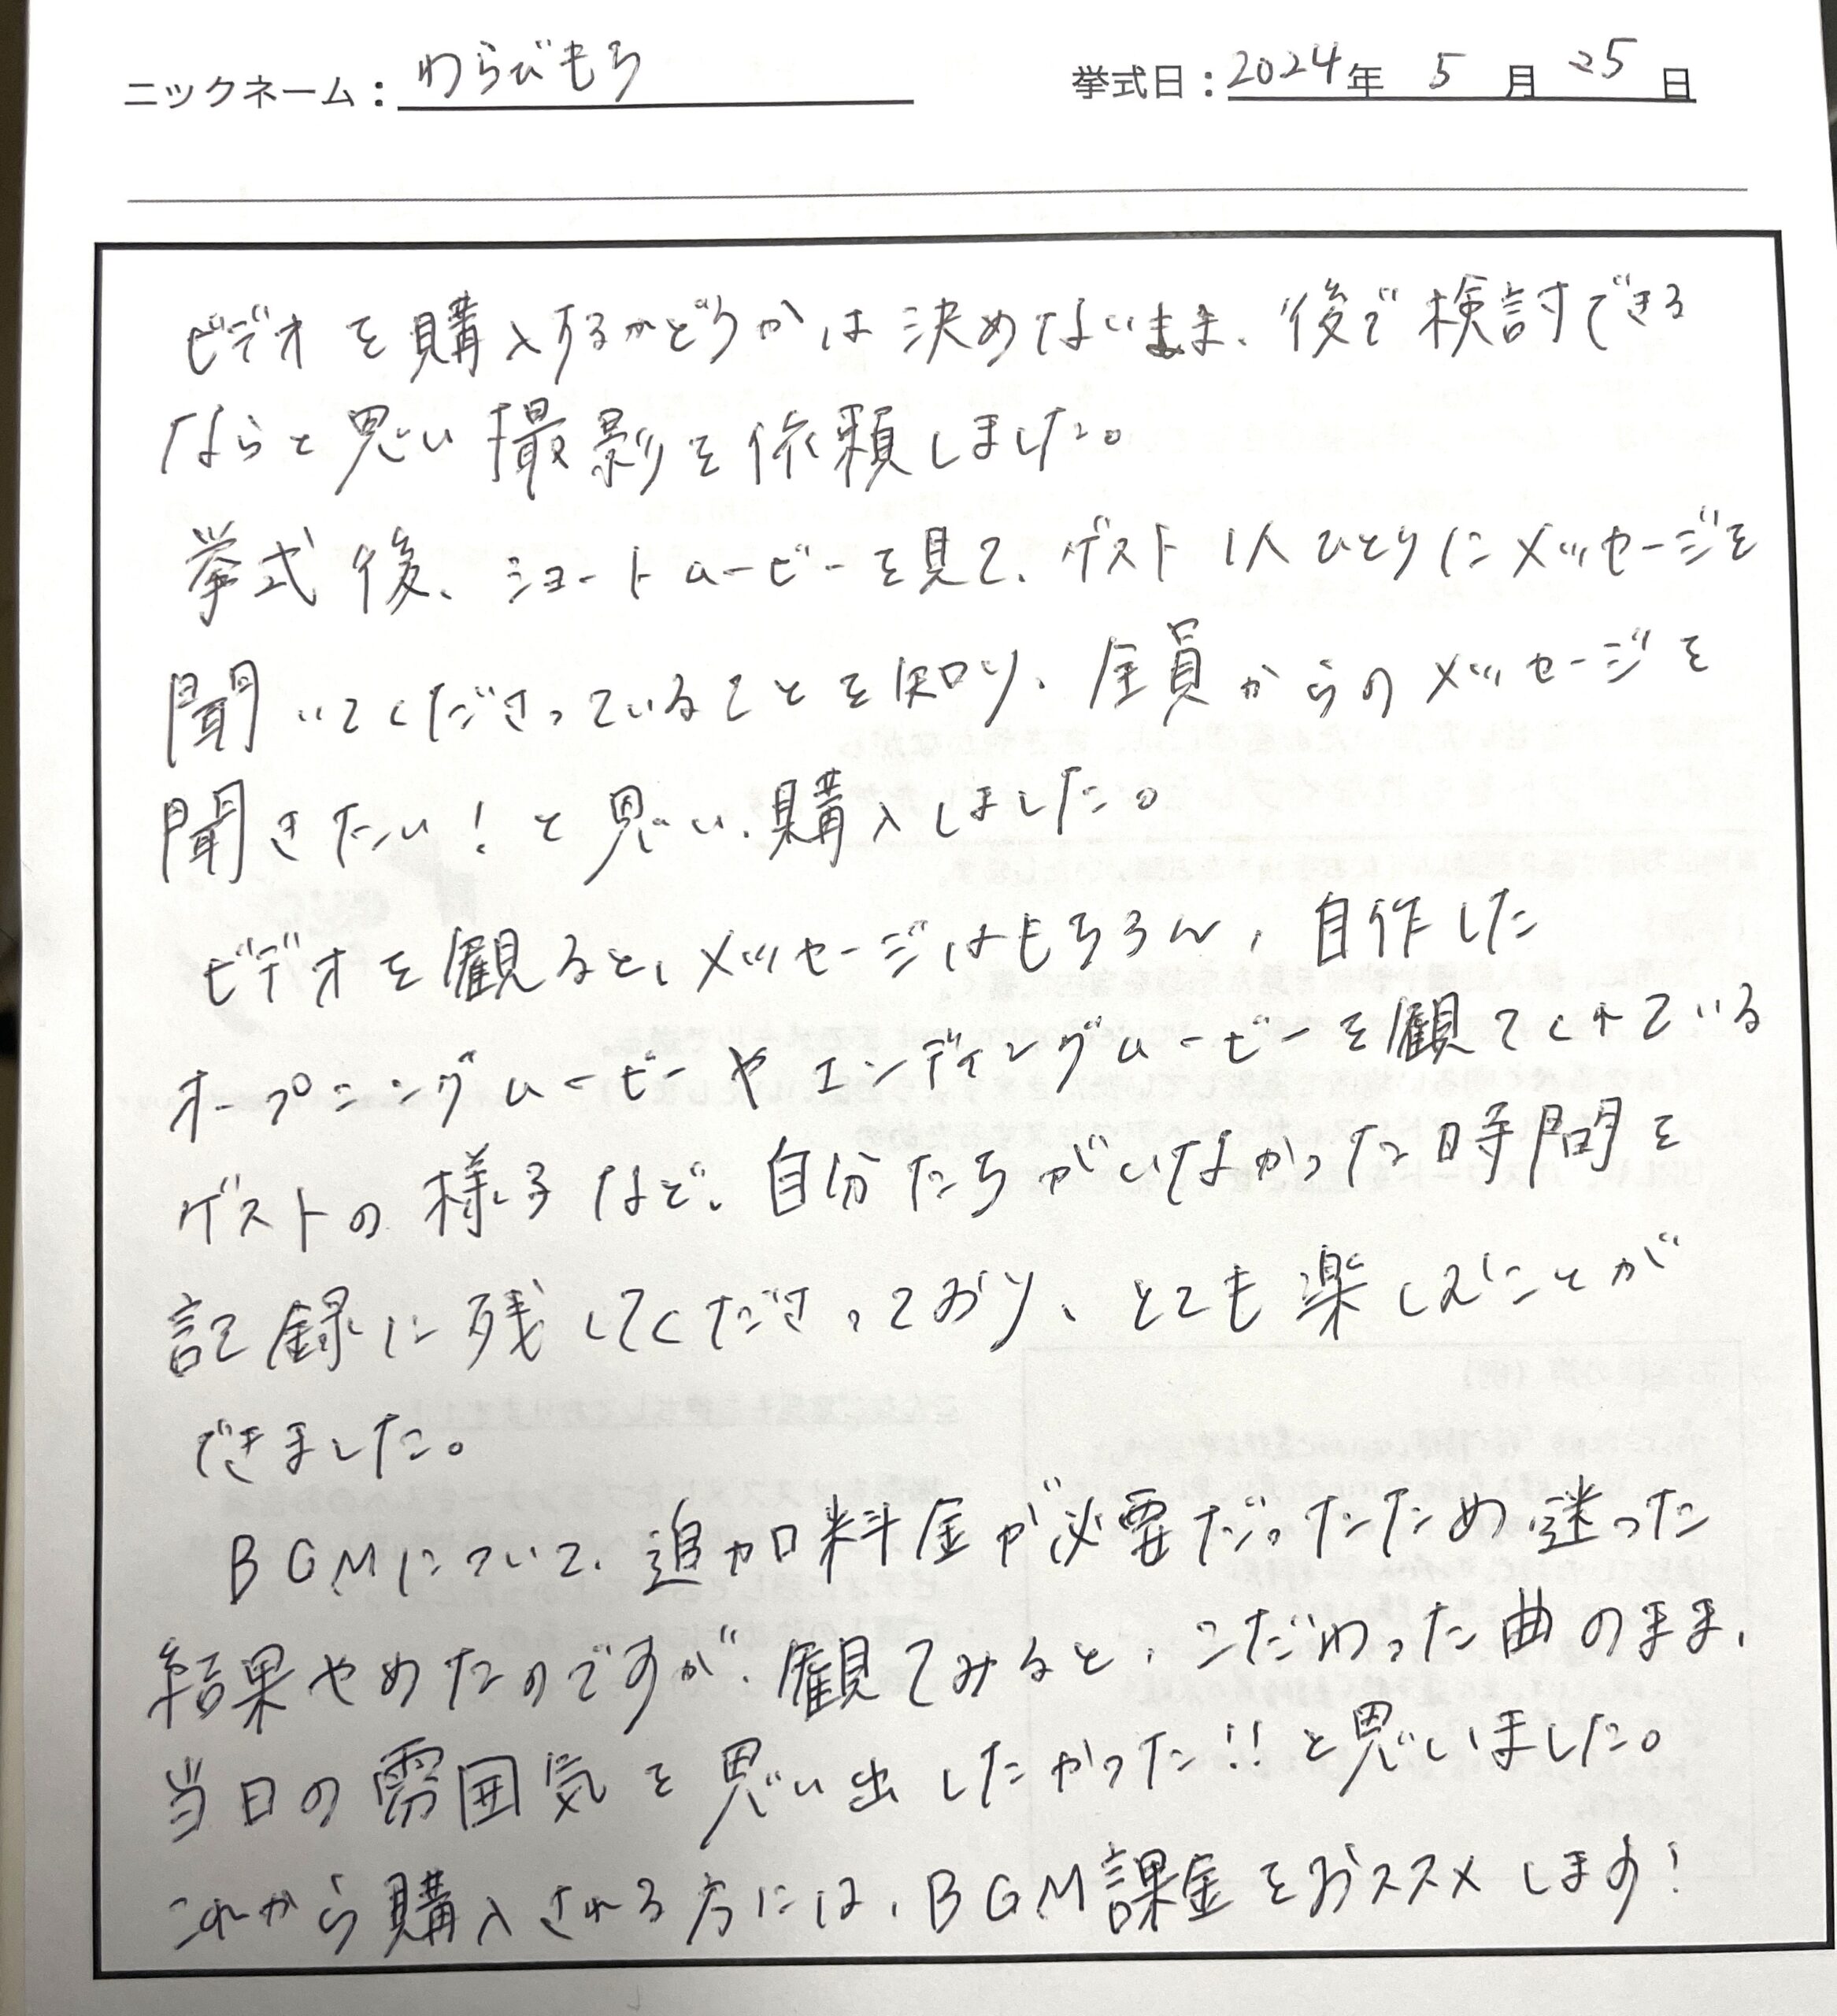 ニックネーム：わらびもち　挙式日：2024年 5月 25日
ビデオを購入するかどうかは決めないまま、後で検討できる
ならと思い撮影を依頼しました。
挙式後、ショートムービーを見て、ゲスト1人ひとりにメッセージを
聞いてくださっていることを知り、全員からのメッセージを
聞きたい！と思い、購入しました。
ビデオを観ると、メッセージはもちろん、自作した
オープニングムービーやエンディングムービーを観てくれている
ゲストの様子など、自分たちがいなかった時間を
記録に残してくださっており、とても楽しむことが
できました。
BGMについて、追加料金が必要だったため迷った
結果やめたのですが、観てみると、こだわった曲のまま、
当日の雰囲気を思い出したかった!!と思いました。
これから購入される方には、BGM課金をおススメします！